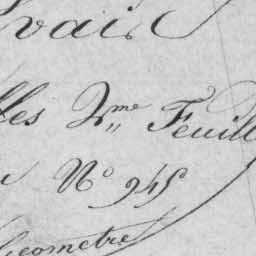 vais
lles 2me Feuill
N° 945
Géometre